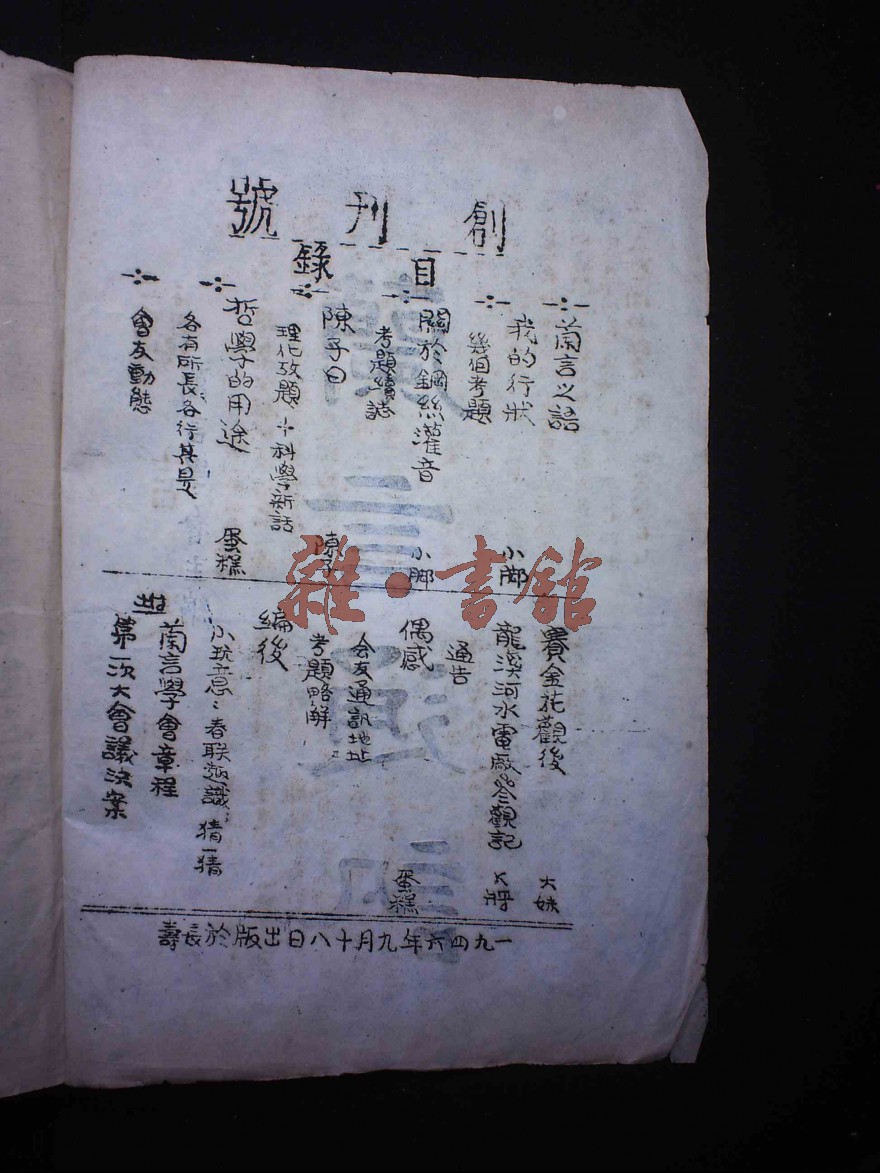 創刊號
目錄
蘭言之語
我的行狀 小腳
幾個考題
關於鋼絲灌音 小腳
考題續誌
陳子曰 陳子
理化攷題 科學新話
哲學的用途 蛋糕
各有所長,各行其是
會友動態
賽金花觀後 大妹
龍溪河水電廠參觀記
通告
偶感 蛋糕
会友通訊地址
考題略解
編後
小玩意:春联趣識;猜一猜
蘭言學會章程
第一次大會議決案
一九四六年九月十八日出版於長壽
雜·書館
蘭言通訊